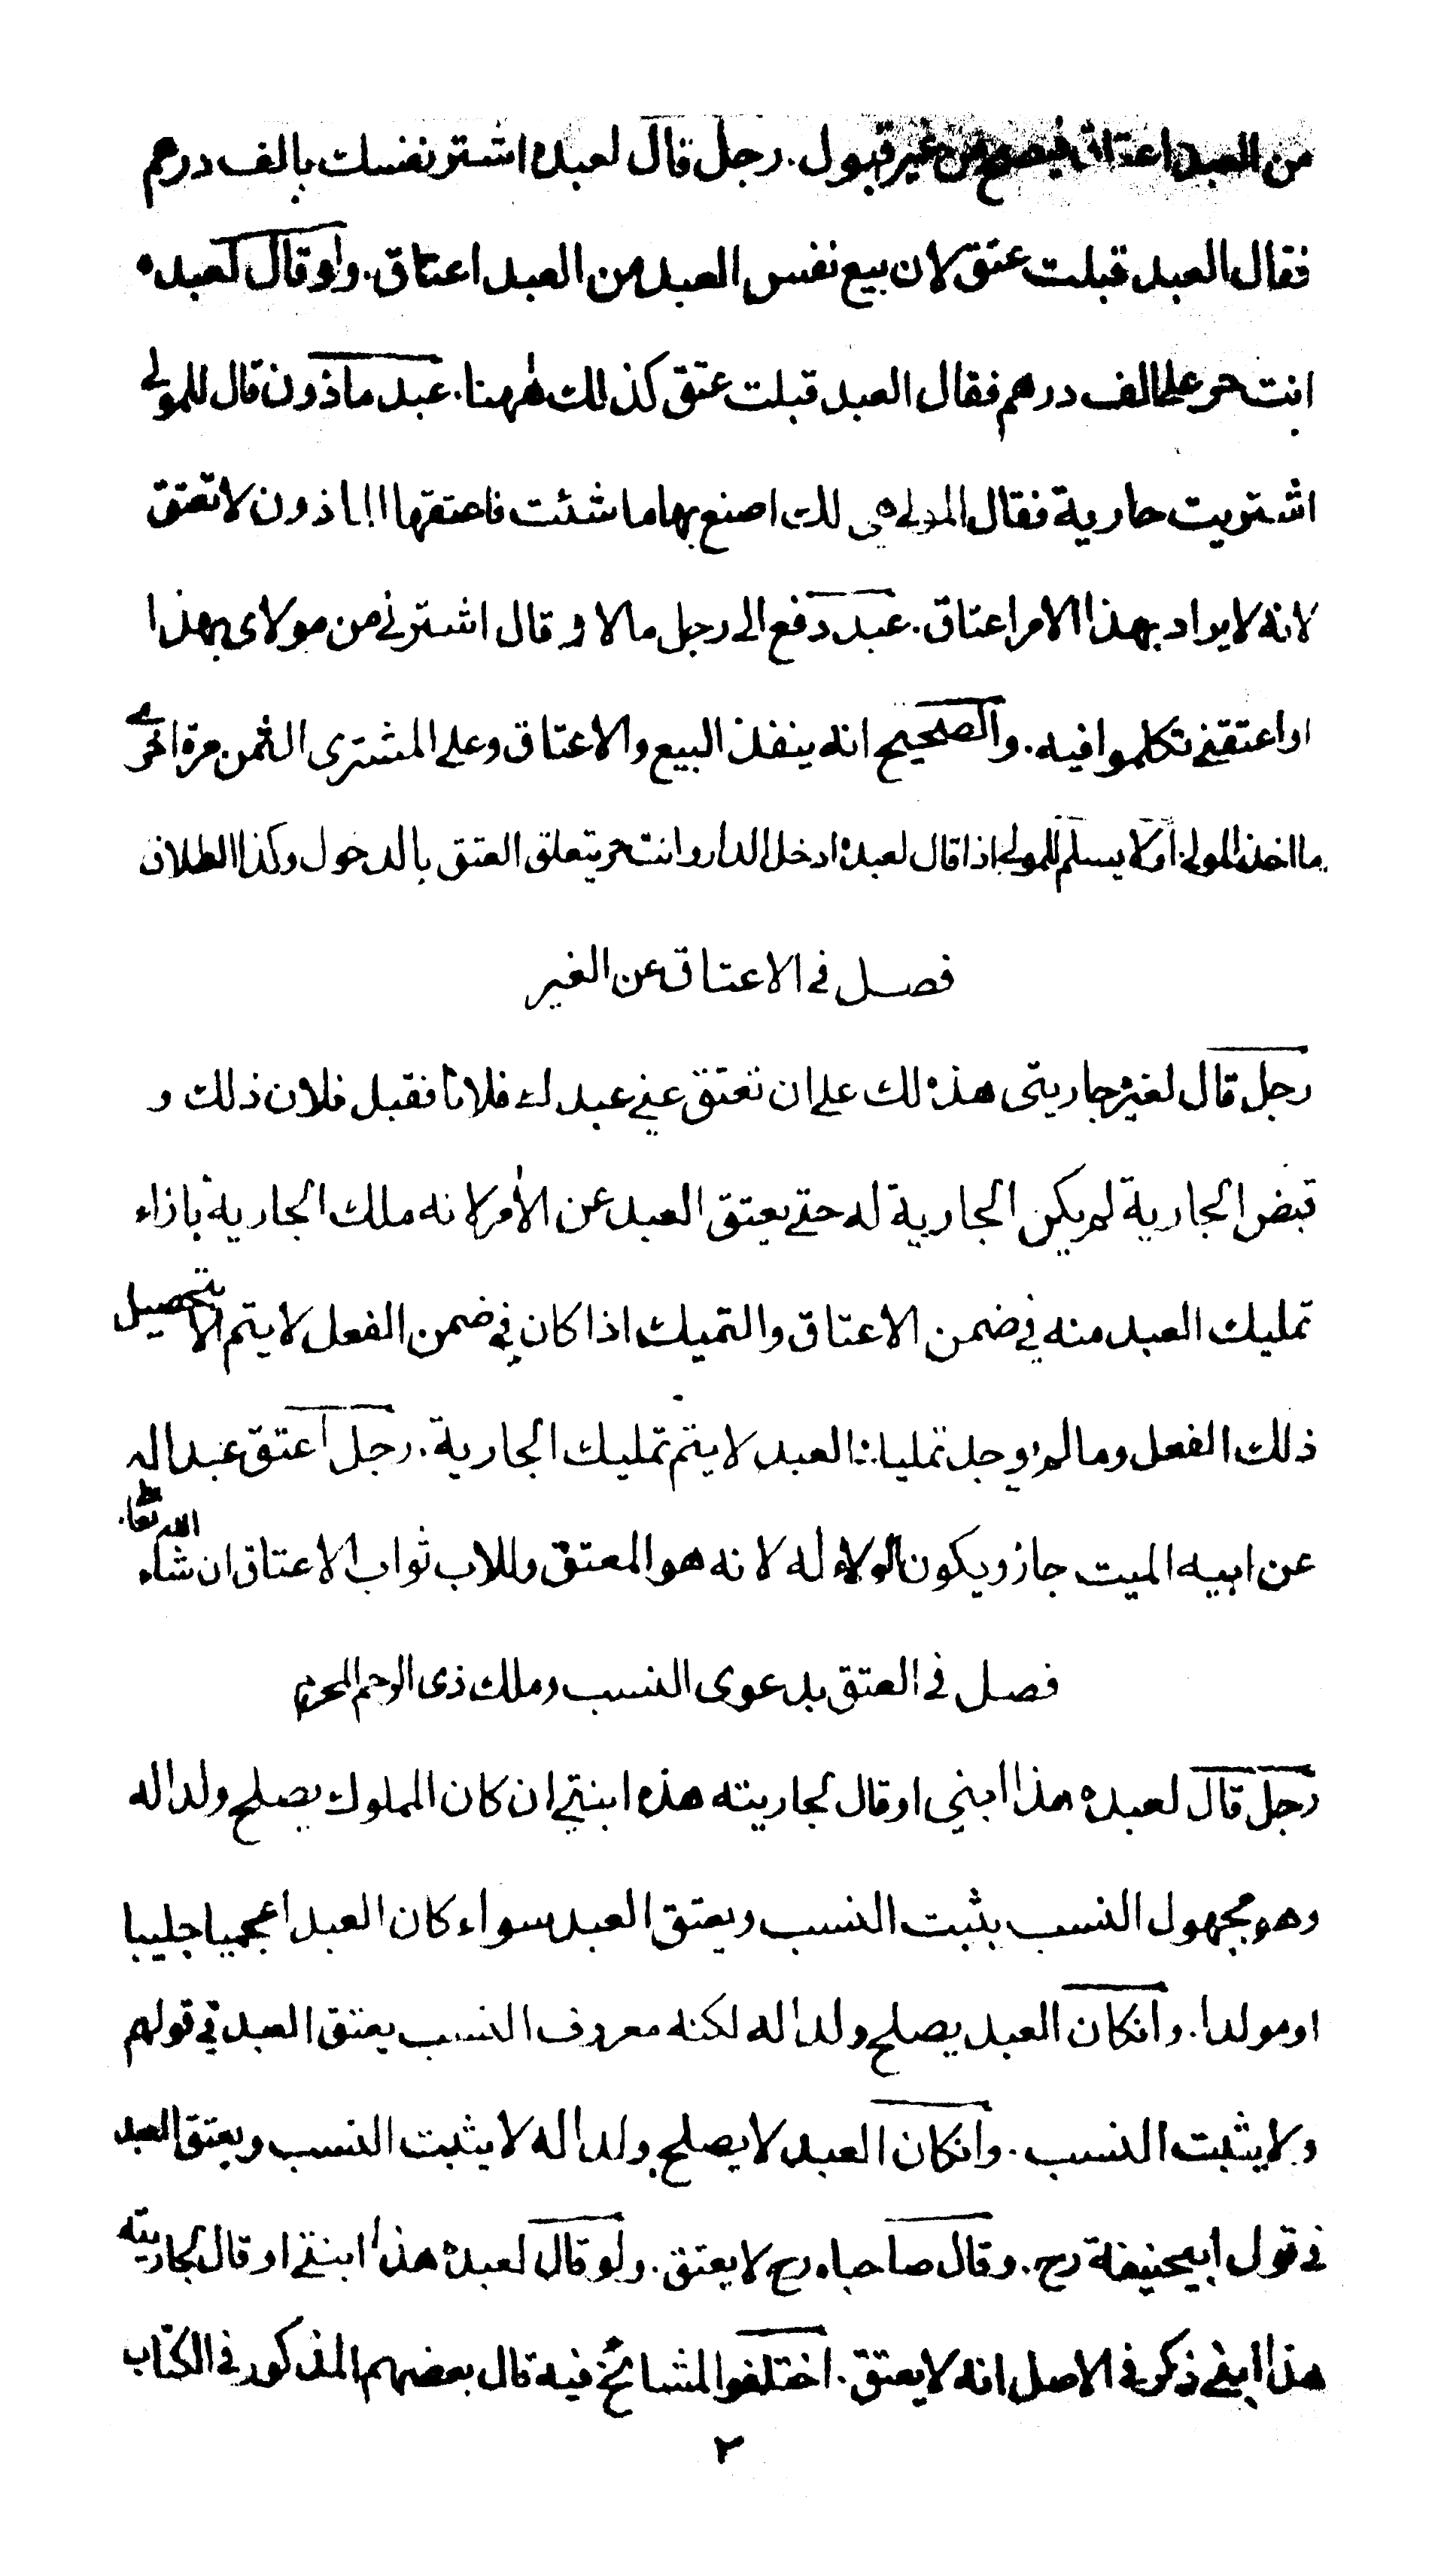 من العبد اعتاق فيصح من غير قبول. رجل قال لعبده اشتر نفسك بالف درهم
فقال العبد قبلت عتق لان بيع نفس العبد من العبد اعتاق. ولو قال لعبده
انت حر على الف درهم فقال العبد قبلت عتق كذلك ههنا. عبد ماذون قال للمولى
اشتريت جارية فقال المولى هي لك اصنع بها ما شئت فاعتقها الماذون لا تعتق
لانه لا يراد بهذا الامر اعتاق. عبد دفع الى رجل مالا و قال اشترني من مولاى بهذا
او اعتقني تكلموا فيه. والصحيح انه ينفذ البيع والاعتاق وعلى المشترى الثمن مرة اخرى
ما اخذ المولى اولا يسلم للمولى اذا قال لعبده ادخل الدار وانت حر يتعلق العتق بالدخول وكذا الطلاق
فصل في الاعتاق عن الغير
رجل قال لغيره جاريتى هذه لك على ان تعتق عني عبدك فلانا فقبل فلان ذلك و
قبض الجارية لم يكن الجارية له حتى يعتق العبد عن الأمر لانه ملك الجارية بازاء
تمليك العبد منه في ضمن الاعتاق والتميك اذا كان في ضمن الفعل لا يتم الا بتحصيل
ذلك الفعل وما لم يوجد تمليك العبد لا يتم تمليك الجارية. رجل اعتق عبدا له
عن ابيه الميت جاز ويكون الولاء له لانه هو المعتق وللاب ثواب الاعتاق ان شاء الله تعا.
فصل في العتق بدعوى النسب وملك ذى الرحم المحرم
رجل قال لعبده هذا ابني او قال لجاريته هذه ابنتي ان كان المملوك يصلح ولدا له
وهو مجهول النسب يثبت النسب ويعتق العبد سواء كان العبد اعجميا جليبا
او مولدا. وانكان العبد يصلح ولدا له لكنه معروف النسب يعتق العبد في قولهم
ولا يثبت النسب. وانكان العبد لا يصلح ولدا له لا يثبت النسب ويعتق العبد
في قول ابيحنيفة رح. وقال صاحباه رح لا يعتق. ولو قال لعبده هذا ابنتي او قال لجاريته
هذا ابني ذكر في الاصل انه لا يعتق. اختلفوا المشائخ فيه قال بعضهم المذكور في الكتاب
٢